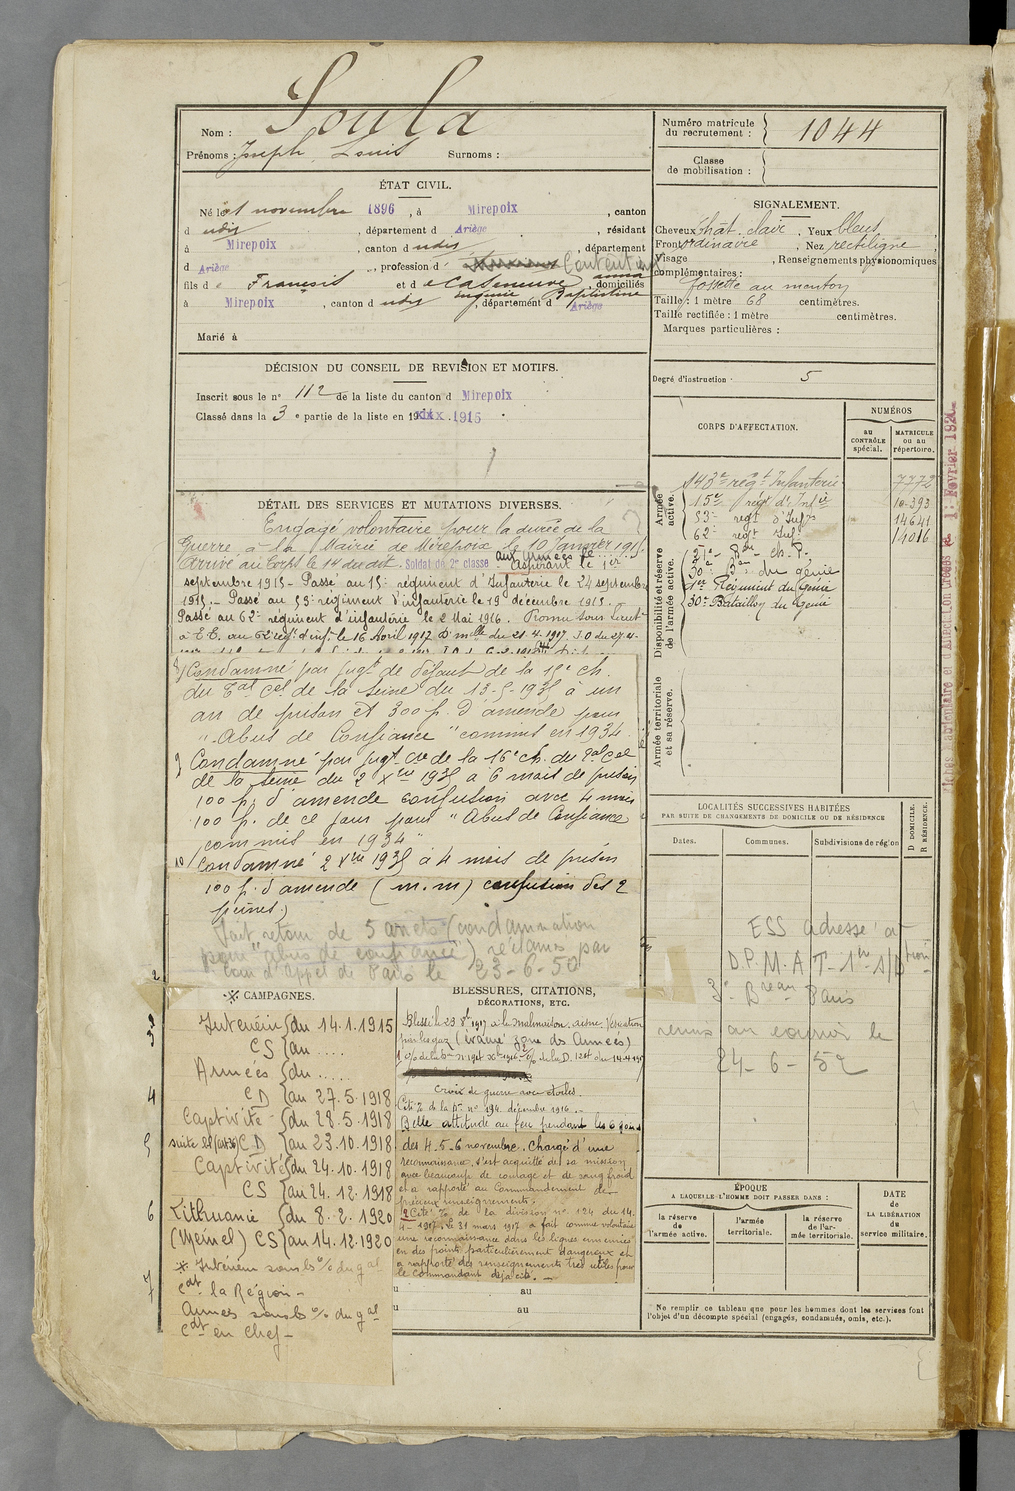 Nom : Soula
Prénoms : Joseph Louis Surnoms :
Numéro matricule
du recrutement : 1044
Classe
de mobilisation :
ÉTAT CIVIL.
Né le 1 novembre 1896, à Mirepoix, canton
d udis, département d Ariège, résidant
à Mirepoix, canton d udis, département
d Ariège, profession d
fils d e François et d e Caseneuve anna, domiciliés
Eugénie Baptistine
à Mirepoix, canton d udis, département d Ariège
Marié à
SIGNALEMENT.
Cheveux chât. clair, Yeux bleus,
Front ordinaire, Nez rectiligne,
Visage , Renseignements physionomiques
complémentaires :
fossette au menton
Taille : 1 mètre 68 centimètres.
Taille rectifiée : 1 mètre centimètres.
Marques particulières :
Degré d'instruction : 5
DÉCISION DU CONSEIL DE REVISION ET MOTIFS.
Inscrit sous le n° 112 de la liste du canton d Mirepoix
Classé dans la 3 e partie de la liste en 1915
CORPS D'AFFECTATION.
NUMÉROS
au
CONTRÔLE
spécial.
MATRICULE
ou au
répertoire.
Armée
active.
143e régt Infanterie 7772
15e régt d'Infie 10.393
53e régt d'Infie 14641
62e régt Inf. 14016
Disponibilité et réserve
de l'armée active.
30e Bon du génie
1er Régiment du Génie
30e Bataillon du Génie
Armée territoriale
et sa réserve.
DÉTAIL DES SERVICES ET MUTATIONS DIVERSES.
Engagé volontaire pour la durée de la
Guerre à la Mairie de Mirepoix le 10 Janvier 1915
aux armées le
Arrivé au corps le 14 du dit. Soldat de 2e classe. aspirant le 1er
septembre 1915 - Passé au 15e régiment d'Infanterie le 24 septembre
1915. - Passé au 53e régiment d'infanterie le 19 décembre 1915.
Passé au 62e régiment d'infanterie le 2 Mai 1916. Promu sous lieut
à T.T. au 62e régt d'inft le 16 Avril 1917 Dn melle du 21-4-1917. JO du 27-4-
8/ Condamné par jugt de défaut de la 18e ch.
du Tal Cel de la Seine du 13-5-1935 à un
an de prison et 300 f. d'amende pour
"Abus de Confiance" commis en 1934
9/ Condamné par jugt de la 16e ch. du Tal Cel
de la Seine du 2 Xbre 1935 à 6 mois de prison
100 f. d'amende confusion avec 4 mois
100 f. de ce jour pour "Abus de Confiance
commis en 1934"
10/ Condamné 2 Xbre 1935 à 4 mois de prison
100 f. d'amende (m. m) confusion des 2
peines)
Fait retour de 5 arrêts (condamnation
pour "abus de confiance") réclamés par
Cour d'Appel de Paris le 23-6-50
LOCALITÉS SUCCESSIVES HABITÉES
PAR SUITE DE CHANGEMENTS DE DOMICILE OU DE RÉSIDENCE
D DOMICILE.
R RÉSIDENCE.
Dates.
Communes.
Subdivisions de région
ESS adressé à
D.P.M.A.T - 1er
3e Breau Paris
remis au courrier le
24-6-52
CAMPAGNES.
Intérieur du 14.1.1915
CS au .....
Armées du .....
CD au 27.5.1918
Captivité du 28.5.1918
CD au 23.10.1918
Captivité du 24.10.1918
CS au 24.12.1918
Lithuanie du 8.2.1920
(Memel) CS au 14.12.1920
* Intérieur sans les % du gal
Cdt la Région -
Armées sans les % du gal
Cdt en Chef -
BLESSURES, CITATIONS,
DÉCORATIONS, ETC.
Blessé le 23 8bre 1917 à la Malmaison. Aisne. Vésication
par les gaz (évacué zone des Armées)
Croix de guerre avec étoiles.
Belle attitude au feu pendant les
des 4-5-6 novembre. Chargé d'une
reconnaissance, s'est acquitté de sa mission
avec beaucoup de courage et de sang froid
et a rapporté au Commandement de
précieux renseignements.
2 Cité % de la division n° 124 du 14
4-1917. le 31 mars 1917 a fait comme volontaire
une reconnaissance dans les lignes ennemies
en des points particulièrement dangereux et
a rapporté des renseignements très utiles pour
le Commandant
au
au
ÉPOQUE
A LAQUELLE L'HOMME DOIT PASSER DANS :
la réserve
de
l'armée active.
l'armée
territoriale.
la réserve
de l'ar-
mée territoriale.
DATE
de
LA LIBÉRATION
du
service militaire.
Ne remplir ce tableau que pour les hommes dont les services font
l'objet d'un décompte spécial (engagés, condamnés, omis, etc.).